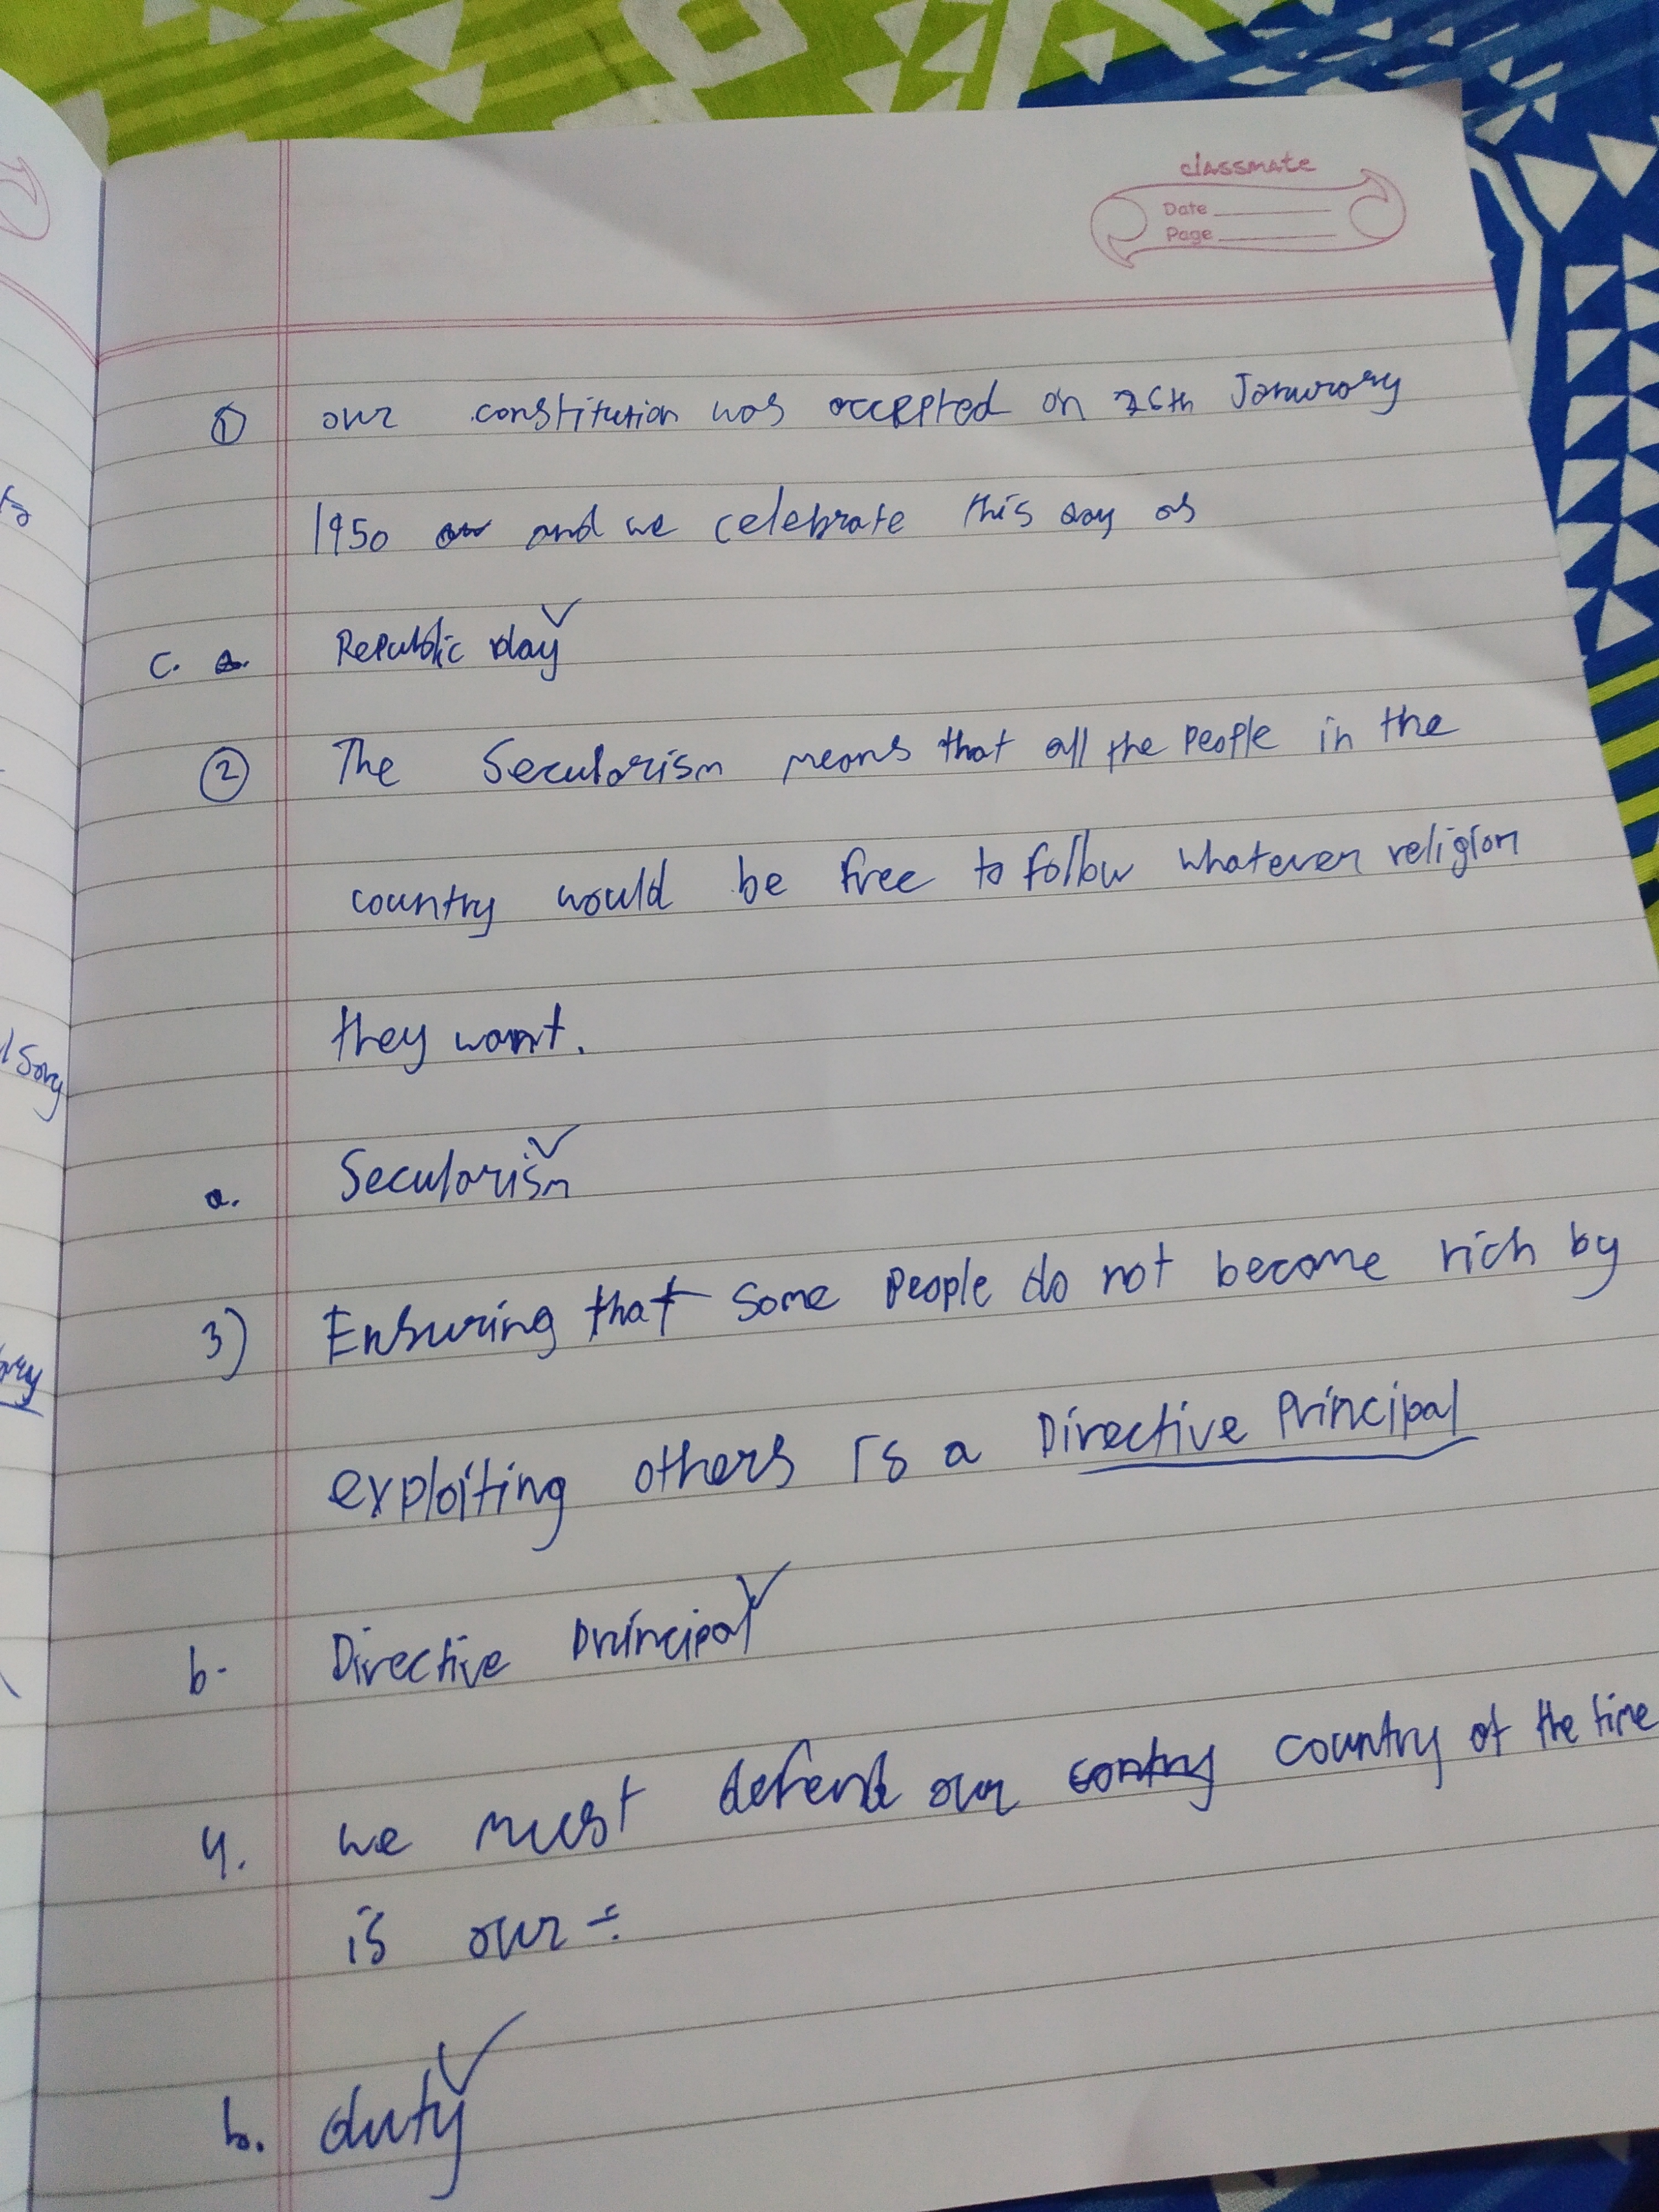 classmate
Date
Page
① our constitution was accepted on 26th January
1950 and we celebrate this day as
c. Republic day
② The Secularism means that all the people in the
country would be free to follow whatever religion
they want.
a. Secularism
3) Ensuring that some people do not become rich by
exploiting others is a Directive Principal
b. Directive Principal
4. we must defend our contry country at the time
is our :-
b. duty